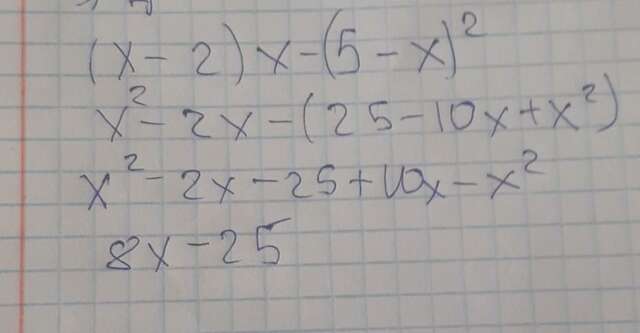 (x - 2)x - (5 - x)²
x² - 2x - (25 - 10x + x²)
x² - 2x - 25 + 10x - x²
8x - 25